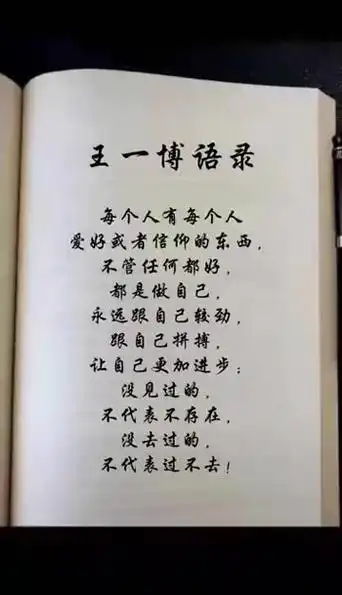 王一博语录
每个人有每个人
爱好或者信仰的东西，
不管任何都好，
都是做自己，
永远跟自己较劲，
跟自己拼搏，
让自己更加进步；
没见过的，
不代表不存在，
没去过的，
不代表过不去！